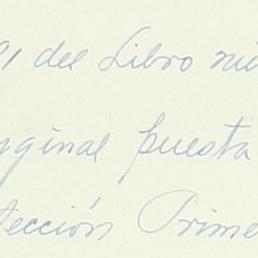 91 del Libro nú
iginal puesta
Sección Prime